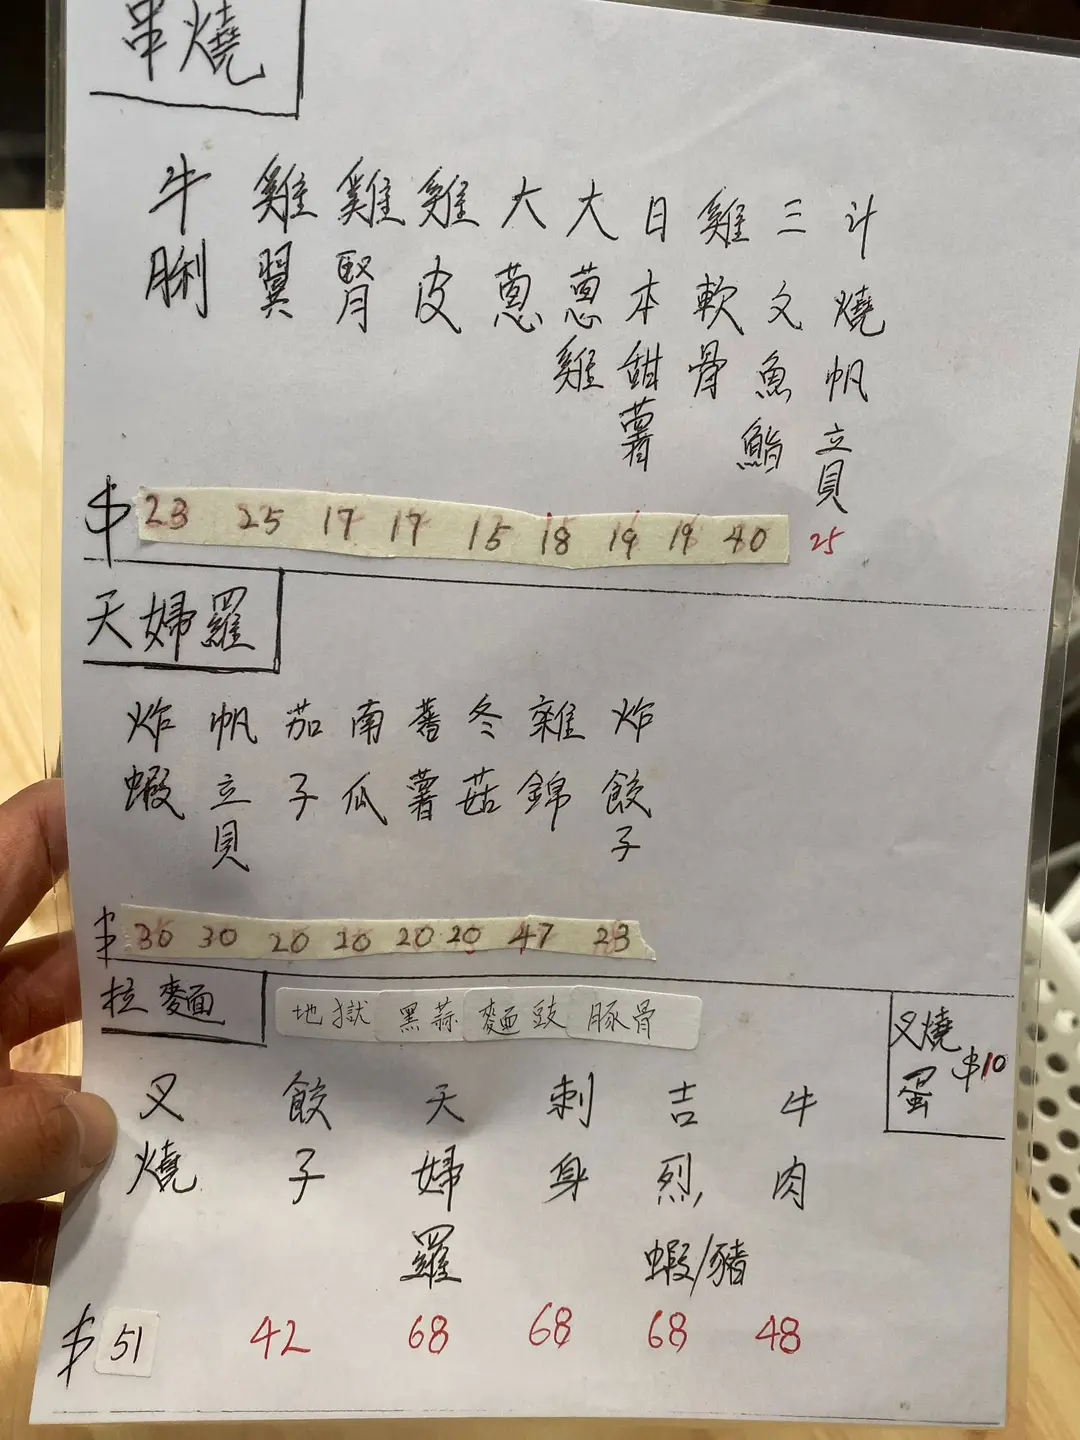 串燒
牛脷
雞翼
雞腎
雞皮
大蔥
大蔥雞
日本甜薯
雞軟骨
三文魚鮨
汁燒帆立貝
$ 23 25 17 17 15 18 19 19 40 25
天婦羅
炸蝦
帆立貝
茄子
南瓜
蕃薯
冬菇
雜錦
炸餃子
$ 30 30 20 20 20 20 47 23
拉麵
地獄 黑蒜 麵豉 豚骨
叉燒
蛋 $10
叉燒
餃子
天婦羅
刺身
吉烈蝦/豬
牛肉
$ 51 42 68 68 68 48